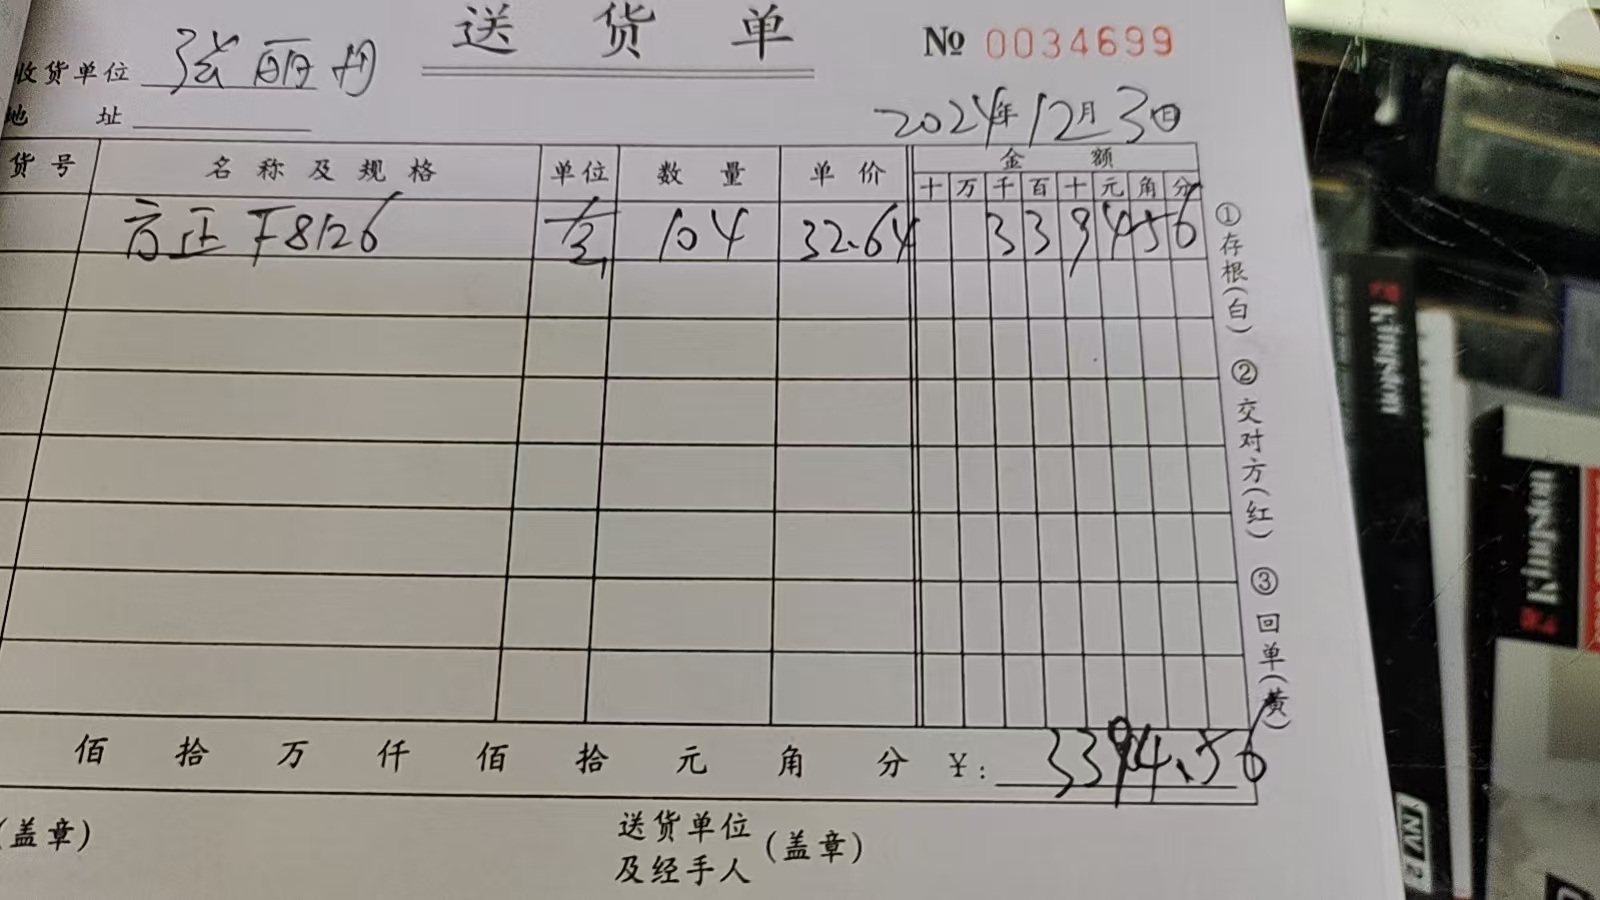 送 货 单
№ 0034699
收货单位 张丽丹
地 址
2024年12月3日
货号 名称及规格 单位 数量 单价 金额
十 万 千 百 十 元 角 分
方正F8126 台 104 32.64 3 3 9 4 5 6
①存根(白) ②交对方(红) ③回单(黄)
佰 拾 万 仟 佰 拾 元 角 分 ¥: 3394.56
(盖章) 送货单位及经手人 (盖章)
Kingston
Kingston
NV2